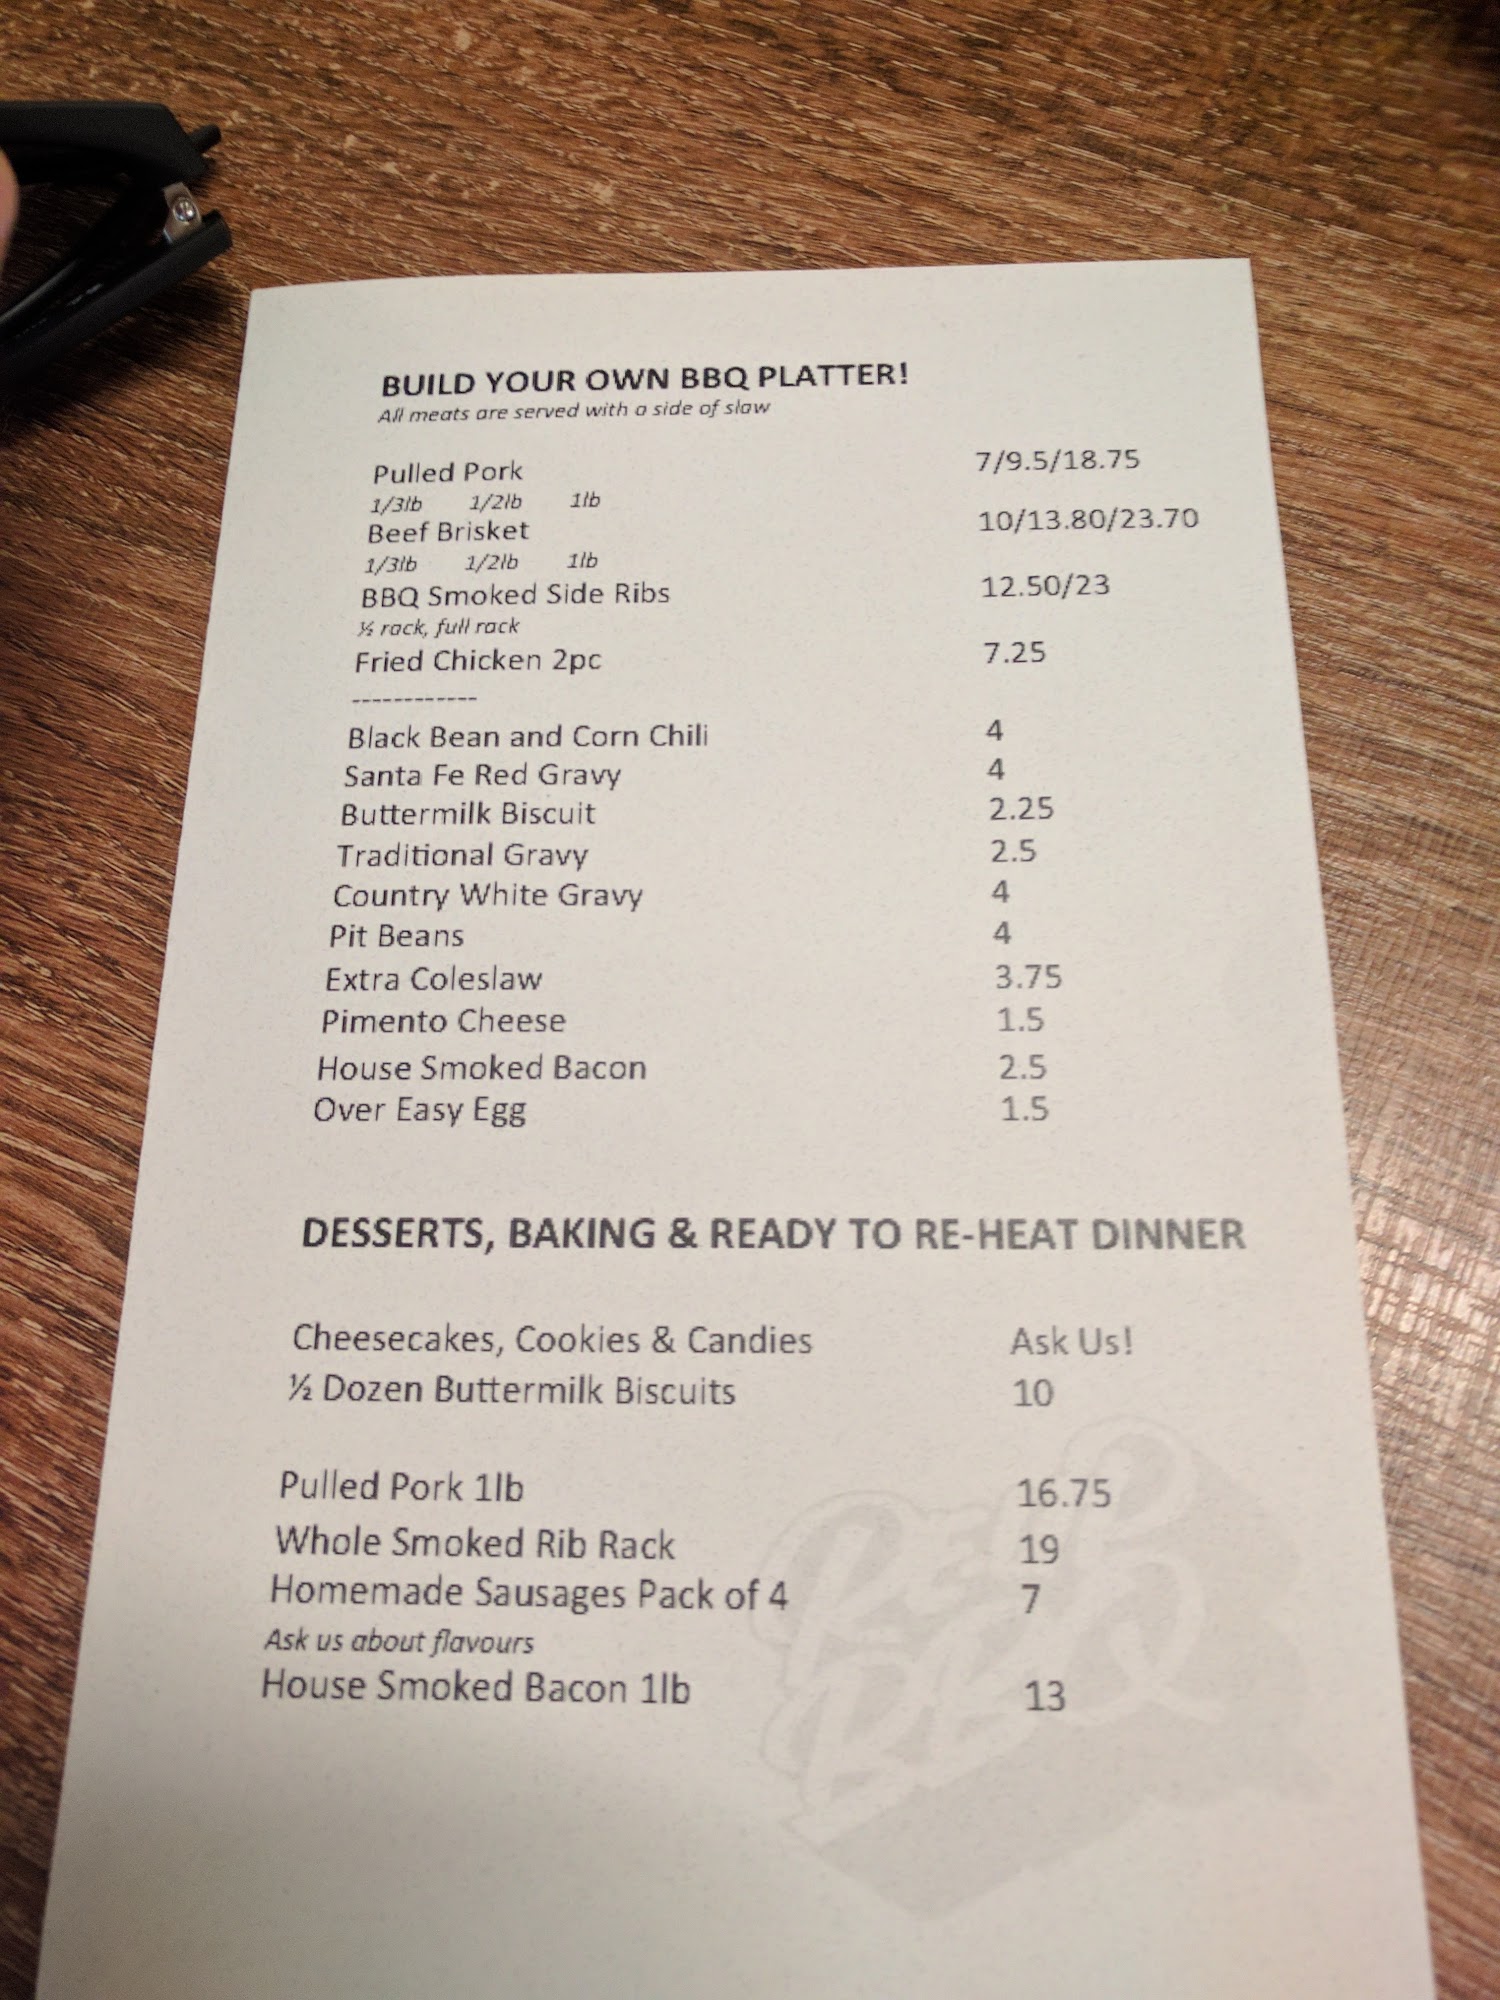 BUILD YOUR OWN BBQ PLATTER!
All meats are served with a side of slaw
Pulled Pork 7/9.5/18.75
1/3lb 1/2lb 1lb
Beef Brisket 10/13.80/23.70
1/3lb 1/2lb 1lb
BBQ Smoked Side Ribs 12.50/23
½ rack, full rack
Fried Chicken 2pc 7.25
------------
Black Bean and Corn Chili 4
Santa Fe Red Gravy 4
Buttermilk Biscuit 2.25
Traditional Gravy 2.5
Country White Gravy 4
Pit Beans 4
Extra Coleslaw 3.75
Pimento Cheese 1.5
House Smoked Bacon 2.5
Over Easy Egg 1.5
DESSERTS, BAKING & READY TO RE-HEAT DINNER
Cheesecakes, Cookies & Candies Ask Us!
½ Dozen Buttermilk Biscuits 10
Pulled Pork 1lb 16.75
Whole Smoked Rib Rack 19
Homemade Sausages Pack of 4 7
Ask us about flavours
House Smoked Bacon 1lb 13